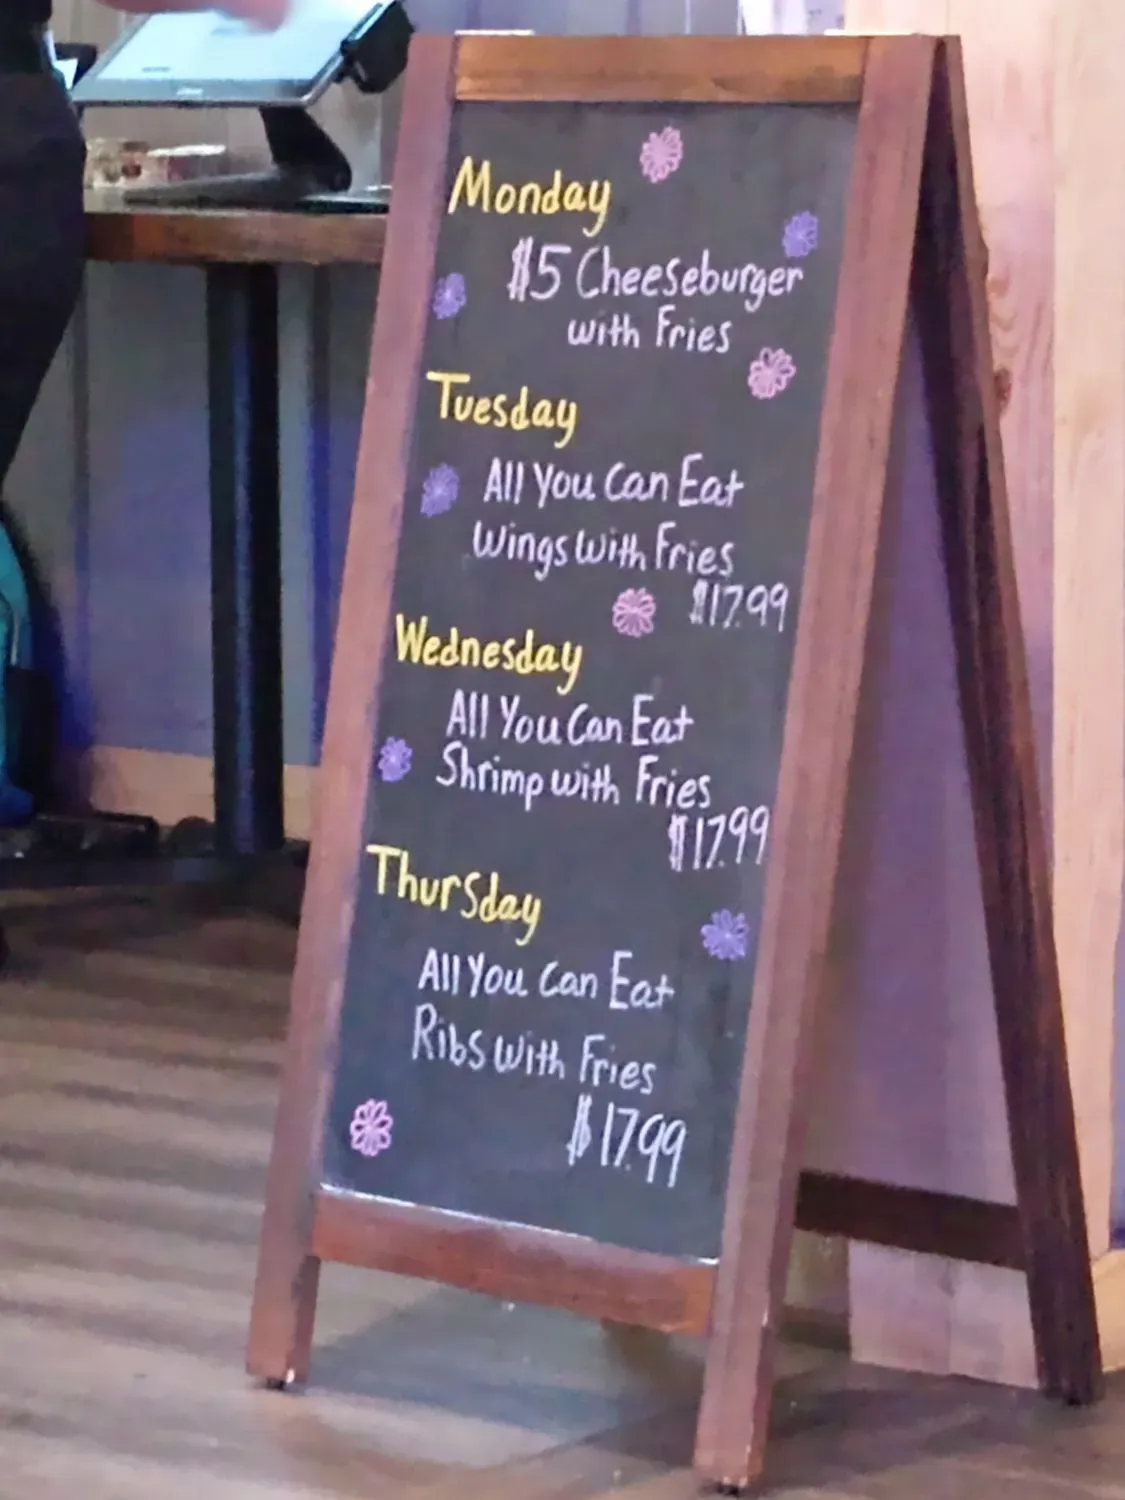 Monday
$5 Cheeseburger
with Fries
Tuesday
All You Can Eat
Wings with Fries
$17.99
Wednesday
All You Can Eat
Shrimp with Fries
$17.99
Thursday
All You Can Eat
Ribs with Fries
$17.99